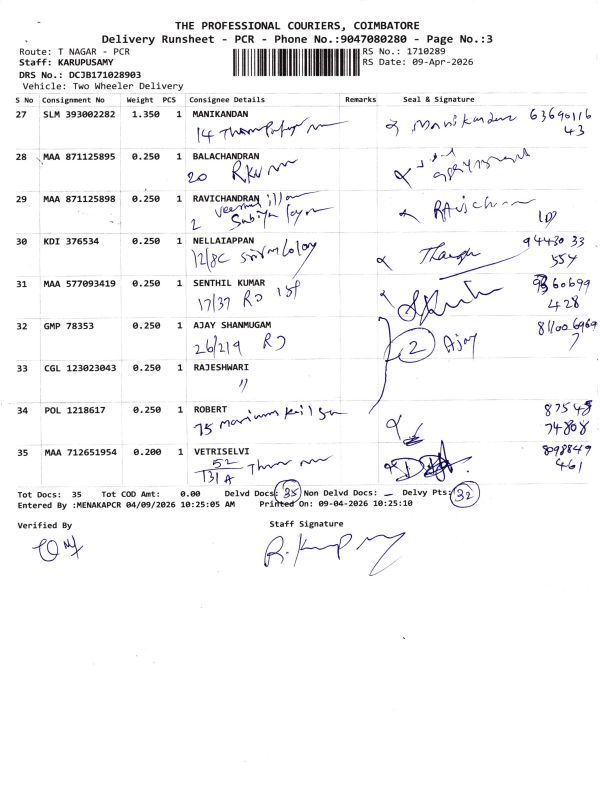 THE PROFESSIONAL COURIERS, COIMBATORE
Delivery Runsheet - PCR - Phone No.:9047080280 - Page No.:3
Route: T NAGAR - PCR RS No.: 1710289
Staff: KARUPUSAMY RS Date: 09-Apr-2026
DRS No.: DCJB171028903
Vehicle: Two Wheeler Delivery
S No Consignment No Weight PCS Consignee Details Remarks Seal & Signature
27 SLM 393002282 1.350 1 MANIKANDAN
14 Manikandan 63690116
43
28 MAA 871125895 0.250 1 BALACHANDRAN
20 RKV
29 MAA 871125898 0.250 1 RAVICHANDRAN
2 Ravichan
30 KDI 376534 0.250 1 NELLAIAPPAN 94430 33
12/8C 554
31 MAA 577093419 0.250 1 SENTHIL KUMAR 60699
17/37 RD 428
32 GMP 78353 0.250 1 AJAY SHANMUGAM
26/219 RD 2 Ajay 7
33 CGL 123023043 0.250 1 RAJESHWARI
"
34 POL 1218617 0.250 1 ROBERT 87548
75 74808
35 MAA 712651954 0.200 1 VETRISELVI 8098849
52 461
131 A
Tot Docs: 35 Tot COD Amt: 0.00 Delvd Docs: 35 Non Delvd Docs: - Delvy Pts: 32
Entered By :MENAKAPCR 04/09/2026 10:25:05 AM Printed On: 09-04-2026 10:25:10
Verified By Staff Signature